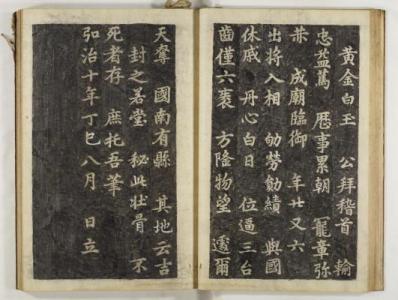 黃金白玉 公拜稽首 輸
忠藎篤 歷事累朝 寵章弥
成廟臨御 年廿又六
出將入相 劬勞勩績 與國
休戚 丹心白日 位逼三台
齒僅六袠 方隆物望 遽爾
天奪 國南有縣 其地云吉
封之若堂 秘此壯骨 不
死者存 庶托吾筆
弘治十年丁巳八月 日立